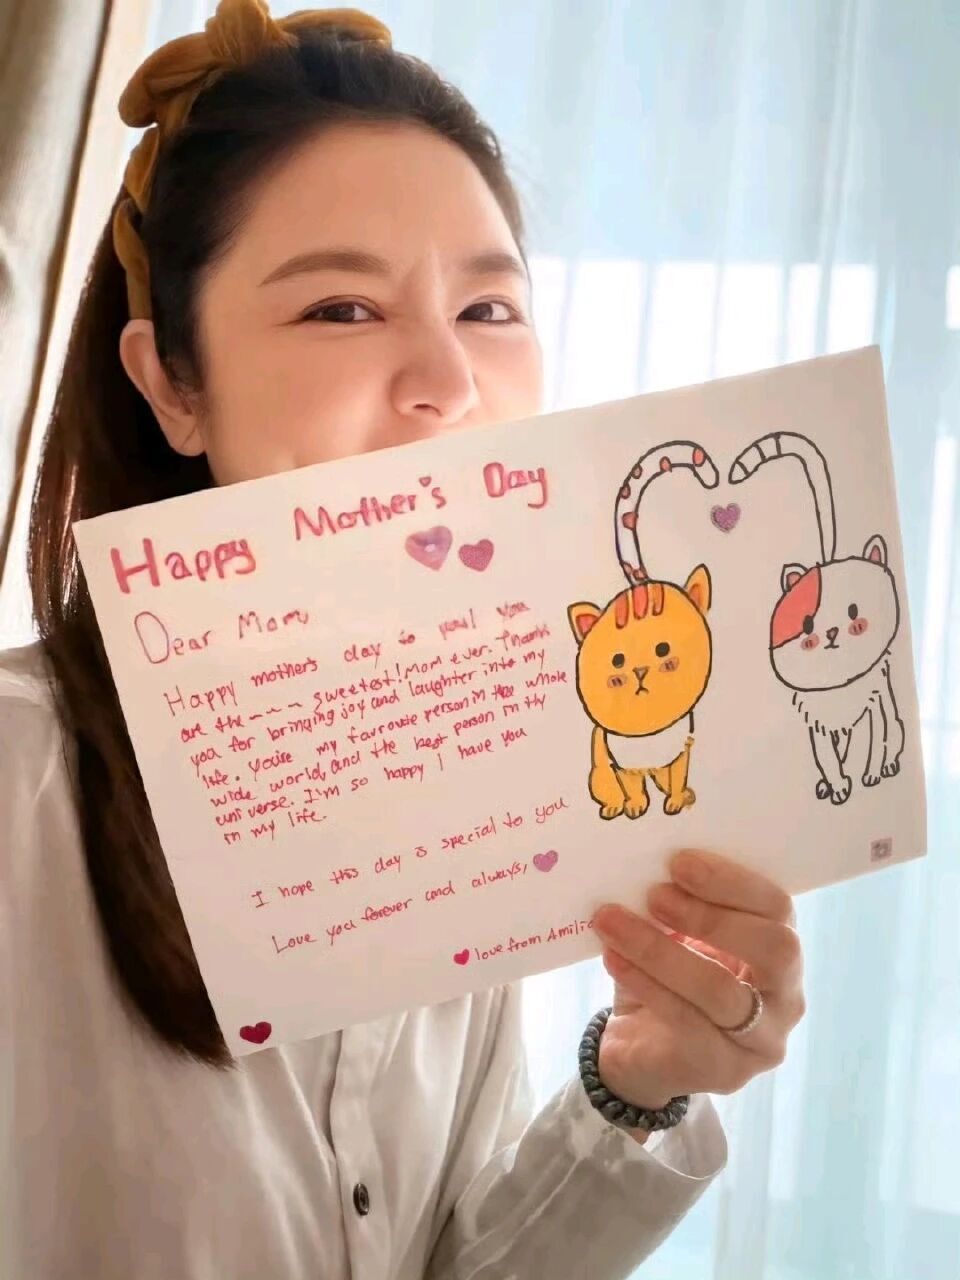 Happy Mother's Day
Dear Mom
Happy mother's day to you! You
are the ~ ~ ~ sweetest! Mom ever. Thank
you for bringing joy and laughter into my
life. You're my favroute person in the whole
wide world, and the best person in thy
universe. I'm so happy I have you
in my life.
I hope this day is special to you
Love you forever and always,
love from Amilia